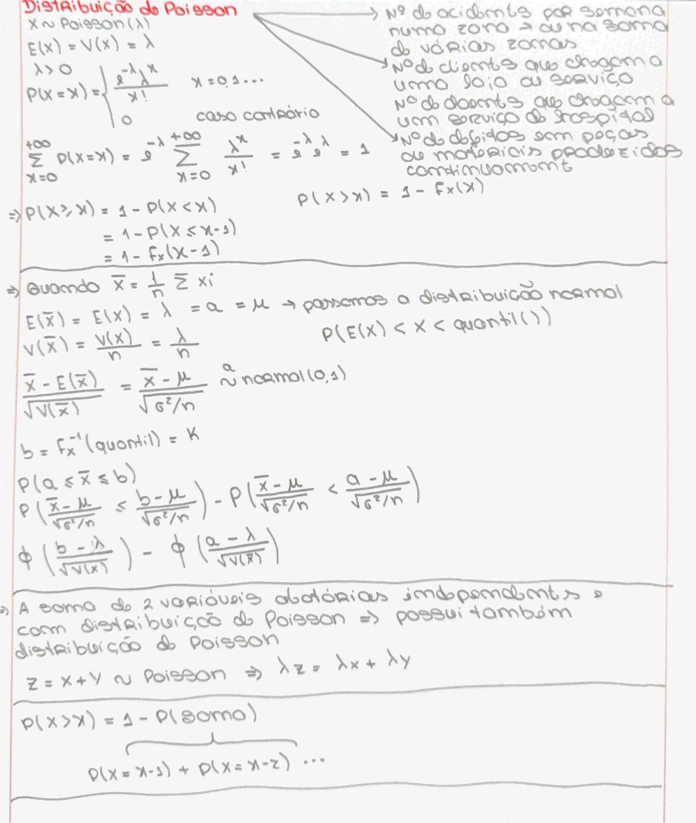 Distribuição de Poisson
X ~ Poisson(λ)
E(x) = V(x) = λ
λ > 0
P(X=x) = { e^-λ λ^x / x!   x = 0,1...
0   caso contrário
∑_{x=0}^{+∞} P(X=x) = e^-λ ∑_{x=0}^{+∞} λ^x / x! = e^-λ e^λ = 1
→ Nº de acidents por semana
numa zona > ou na soma
de várias zonas
Nº de clients que chegam a
uma loja ou serviço
Nº de doents que chegam a
um serviço de hospital
Nº de defeitos em peças
ou materiais produzidos
continuament
⇒ P(X ≥ x) = 1 - P(X < x)
= 1 - P(X ≤ x-1)
= 1 - Fx(x-1)
P(X > x) = 1 - Fx(x)
⇒ Quando x̄ = 1/n ∑ xi
E(x̄) = E(x) = λ = a = μ → passamos a distribuição normal
V(x̄) = V(x)/n = λ/n
P(E(x) < X < quantil())
x̄ - E(x̄) / √V(x̄) = x̄ - μ / √σ²/n ~ᵃ normal(0,1)
b = Fx^-1(quantil) = K
P(a ≤ x̄ ≤ b)
P(x̄ - μ / √σ²/n ≤ b - μ / √σ²/n) - P(x̄ - μ / √σ²/n < a - μ / √σ²/n)
ϕ(b - λ / √V(x̄)) - ϕ(a - λ / √V(x̄))
⇒ A soma de 2 variáveis aleatórias independents e
com distribuição de Poisson ⇒ possui também
distribuição de Poisson
Z = X + Y ~ Poisson ⇒ λz = λx + λy
P(X > x) = 1 - P(soma)
P(X = x-1) + P(X = x-2) ...